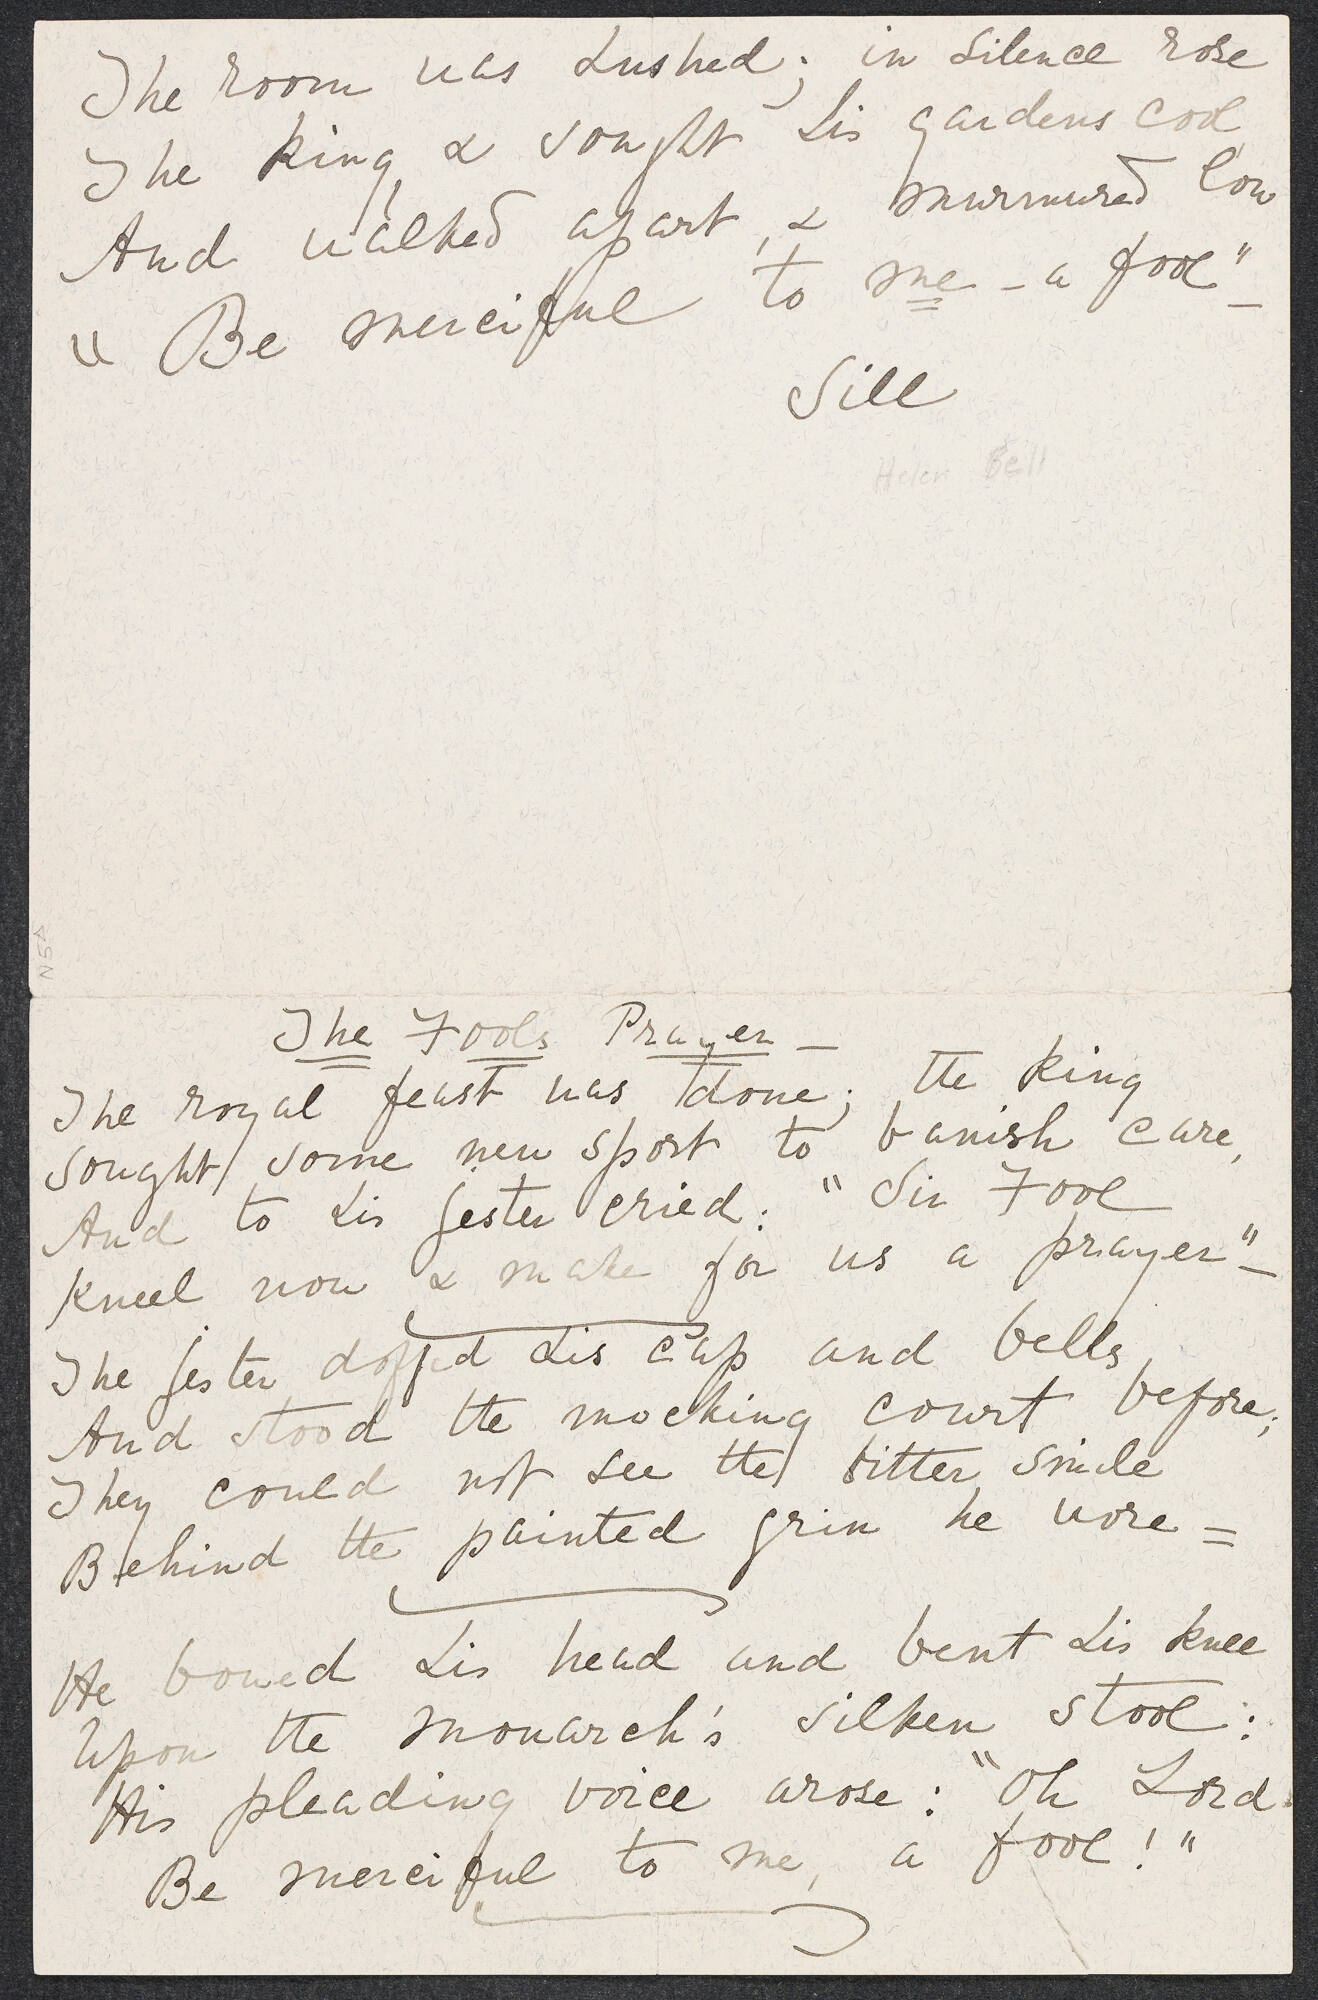 The room was hushed; in silence rose
The King, & sought his gardens cool,
And walked apart, & murmured low
"Be merciful to me - a fool" -
Sill
Helen Bell
N5A
The Fools Prayer -
The royal feast was done; the King
Sought some new sport to banish care,
And to his jester cried: "Sir Fool
Kneel now & make for us a prayer" -
The jester doffed his cap and bells,
And stood the mocking court before;
They could not see the bitter smile
Behind the painted grin he wore =
He bowed his head and bent his knee
Upon the monarch's silken stool:
His pleading voice arose: "Oh Lord
Be merciful to me, a fool!"